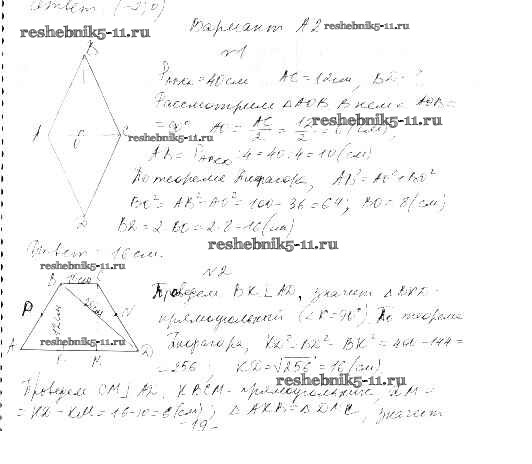 Ответ: (-3;0)
reshebnik5-11.ru
Вариант А2
reshebnik5-11.ru
№1
B
A
C
O
D
P = 40 см AC = 12 см, BD - ?
Рассмотрим △AOB. В нем ∠AOB =
= 90°, AO = AC/2 = 12/2 = 6 (см),
reshebnik5-11.ru
reshebnik5-11.ru
AB = P : 4 = 40 : 4 = 10 (см)
По теореме Пифагора, AB² = AO² + BO²
BO² = AB² - AO² = 100 - 36 = 64; BO = 8 (см)
BD = 2 BO = 2·8 = 16 (см)
Ответ: 16 см.
reshebnik5-11.ru
reshebnik5-11.ru
№2
B
10
C
P
N
12см
A
K
D
Проведем BK⊥AD, значит △BKD -
прямоугольный (∠K = 90°). По теореме
Пифагора, KD² = BD² - BK² = 400 - 144 =
= 256; KD = √256 = 16 (см)
reshebnik5-11.ru
Проведем CM⊥AD, KBCM - прямоугольник,
= KD - KM = 16 - 10 = 6 (см); значит
- 19 -
reshebnik5-11.ru